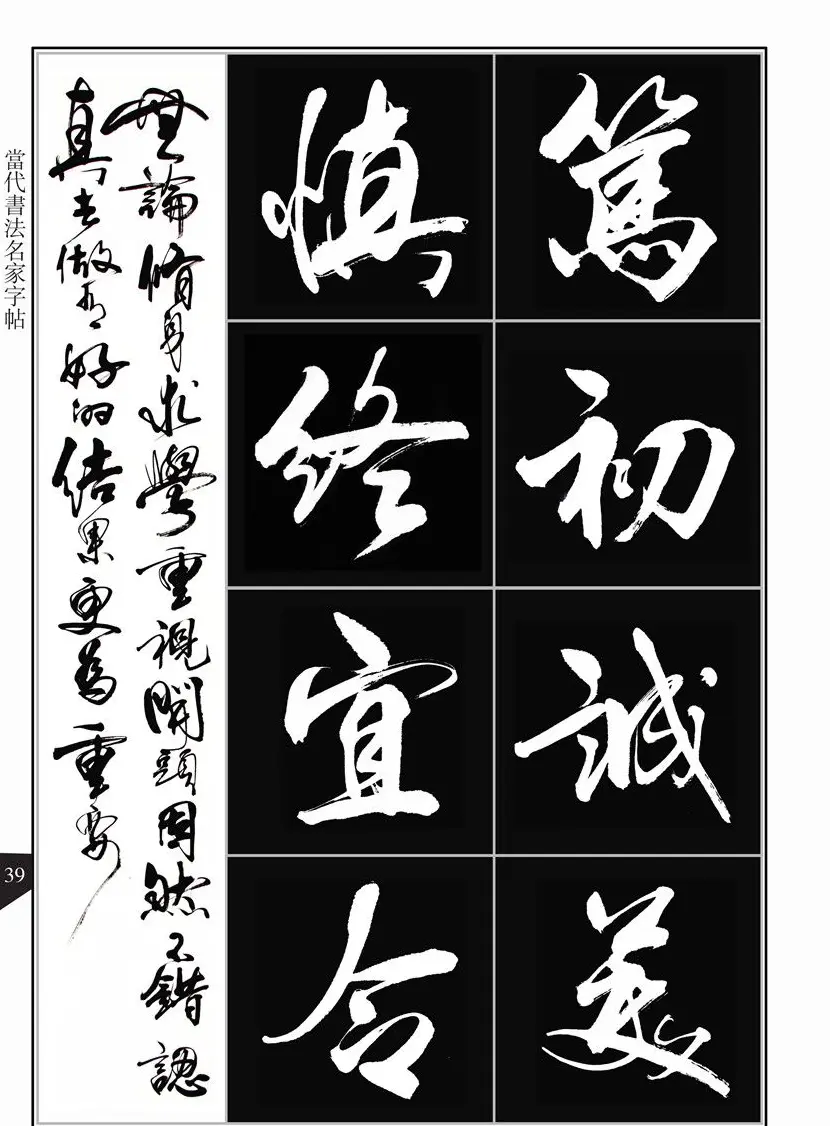 篤初誠美
慎終宜令
無論修身求學重視開頭固然不錯認
真去做有好的結果更為重要
當代書法名家字帖
39